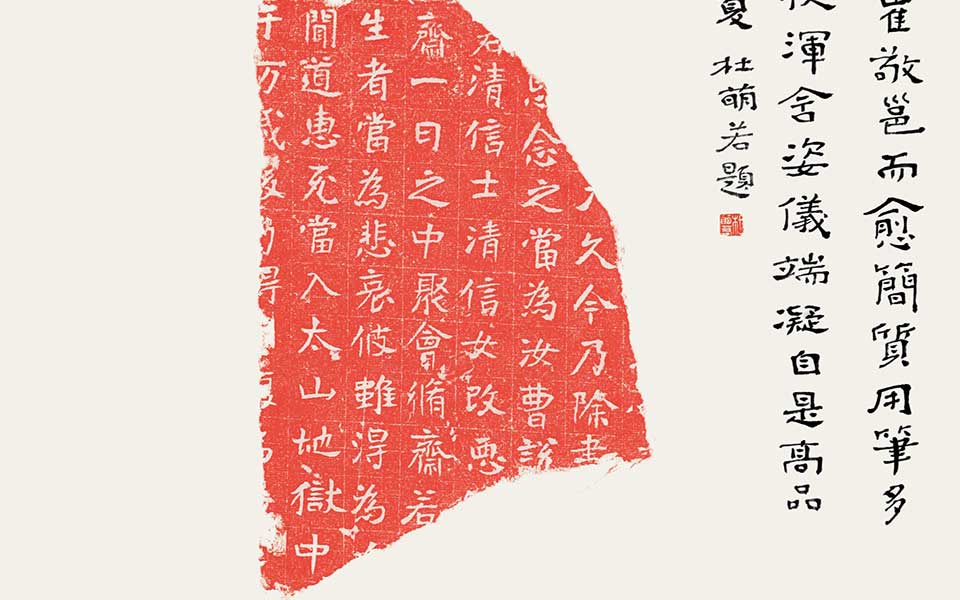 崔敬邕而愈簡質用筆多
渾含姿儀端凝自是高品
夏 杜萌若題
久今乃除
念之當為汝曹說
清信士清信女改惡
齋一日之中聚會脩齋若
生者當為悲哀彼雖得為
聞道惠死當入太山地獄中
万歲後